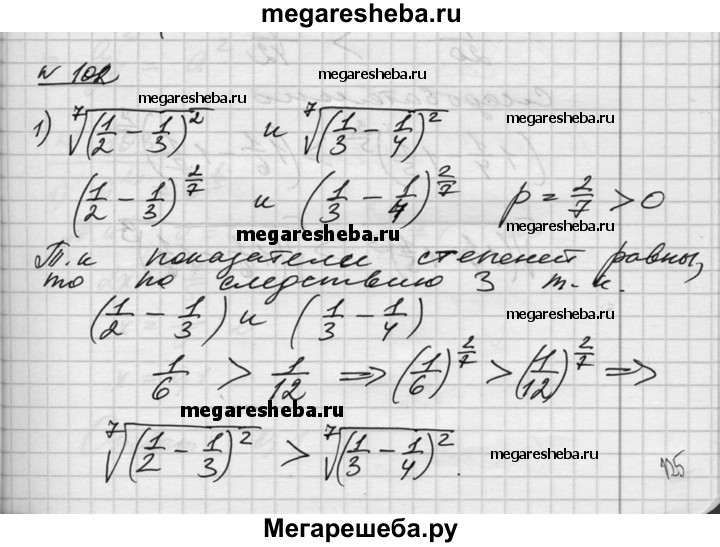 megaresheba.ru
№ 102
megaresheba.ru
megaresheba.ru
1) ⁷√(1/2 − 1/3)² и ⁷√(1/3 − 1/4)²
(1/2 − 1/3)^(2/7) и (1/3 − 1/4)^(2/7) p = 2/7 > 0
megaresheba.ru
megaresheba.ru
Т.к показатели степеней равны,
то по следствию 3 т.к.
(1/2 − 1/3) и (1/3 − 1/4)
megaresheba.ru
1/6 > 1/12 => (1/6)^(2/7) > (1/12)^(2/7) =>
megaresheba.ru
⁷√(1/2 − 1/3)² > ⁷√(1/3 − 1/4)².
megaresheba.ru
125
Мегарешеба.ру